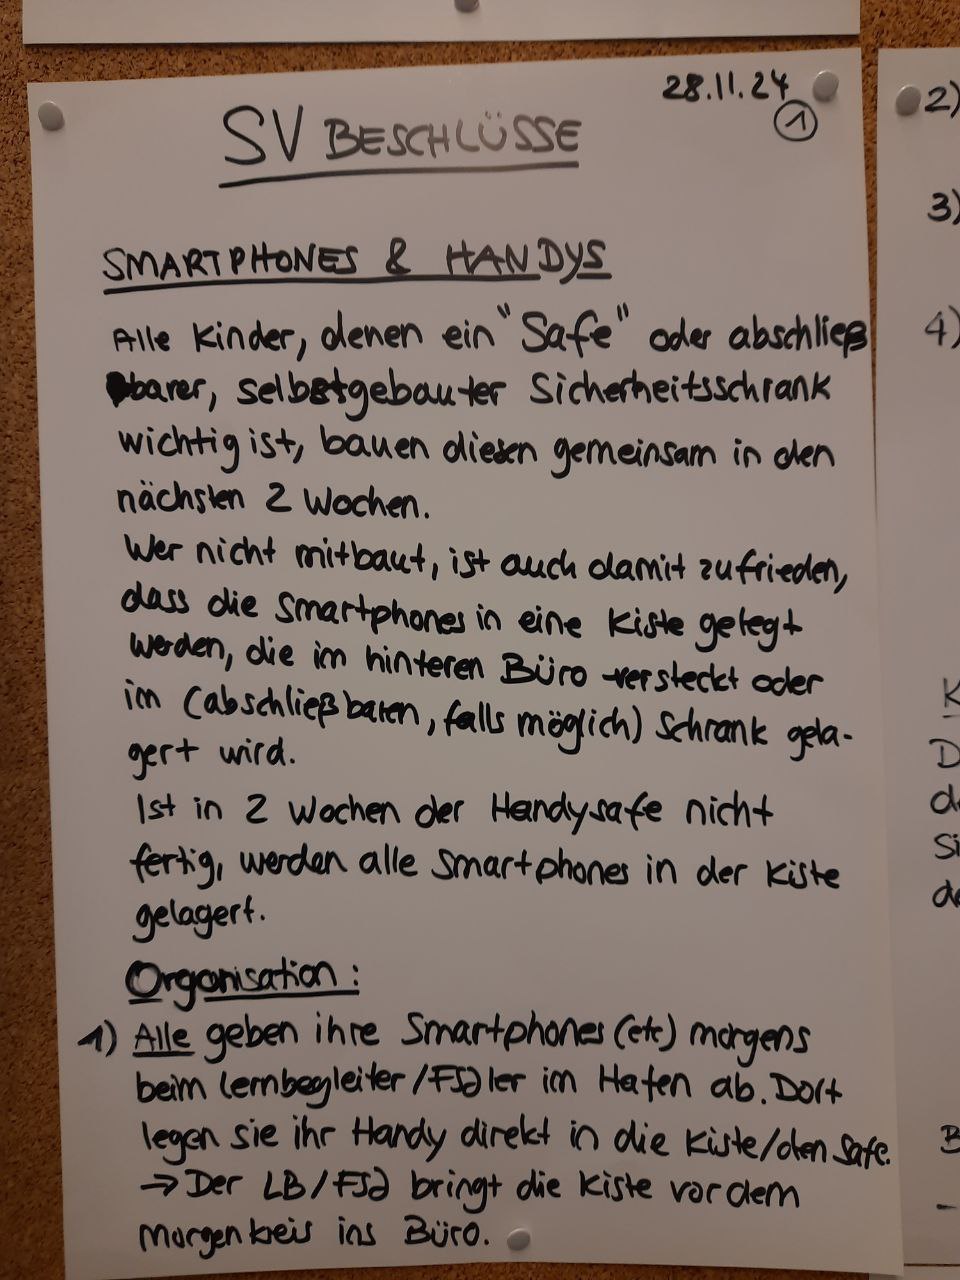 28.11.24
1
SV BESCHLÜSSE
SMARTPHONES & HANDYS
Alle Kinder, denen ein "Safe" oder abschließ
barer, selbstgebauter Sicherheitsschrank
wichtig ist, bauen diesen gemeinsam in den
nächsten 2 Wochen.
Wer nicht mitbaut, ist auch damit zufrieden,
dass die Smartphones in eine Kiste gelegt
werden, die im hinteren Büro versteckt oder
im (abschließbaren, falls möglich) Schrank gela-
gert wird.
Ist in 2 Wochen der Handysafe nicht
fertig, werden alle Smartphones in der Kiste
gelagert.
Organisation:
1) Alle geben ihre Smartphones (etc) morgens
beim Lernbegleiter/FSJler im Hafen ab. Dort
legen sie ihr Handy direkt in die Kiste/den Safe.
→ Der LB/FSJ bringt die Kiste vor dem
Morgenkreis ins Büro.
2)
3)
4)
K
D
de
Si
de
B
-